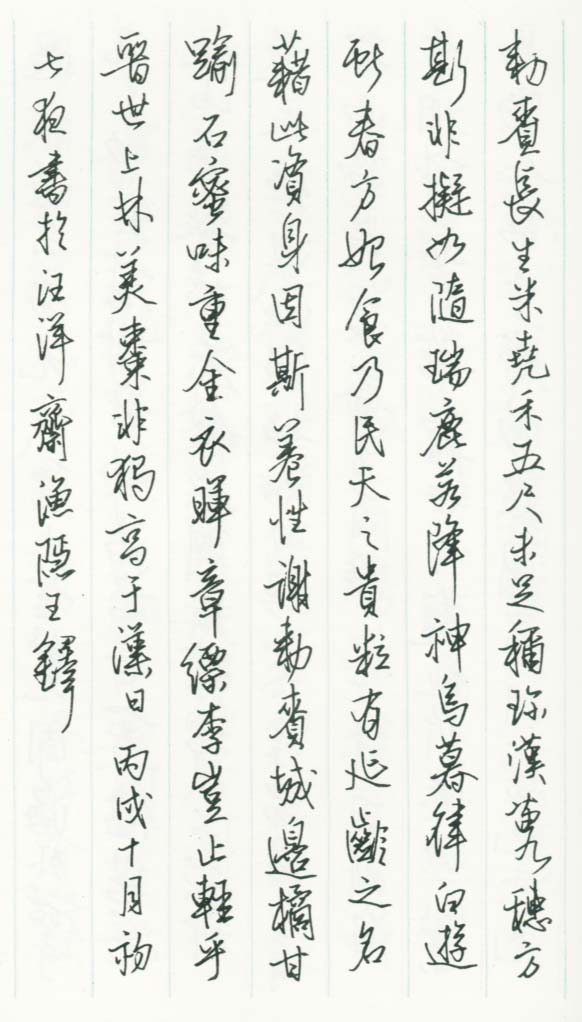 勅賚長生米堯禾五尺未足稱珍漢苗九穗方
斯非擬如隨瑞鹿若降神烏暮律白遊
獻春方始食乃民天之貴粒有延齡之名
藉此資身因斯養性謝勅賚城邊橘甘
踰石蜜味重金衣暉章縹李豈止輕乎
晉世上林美棗非獨高于漢日 丙戌十月初
七夜書於汪洋齋漁隱王鐸